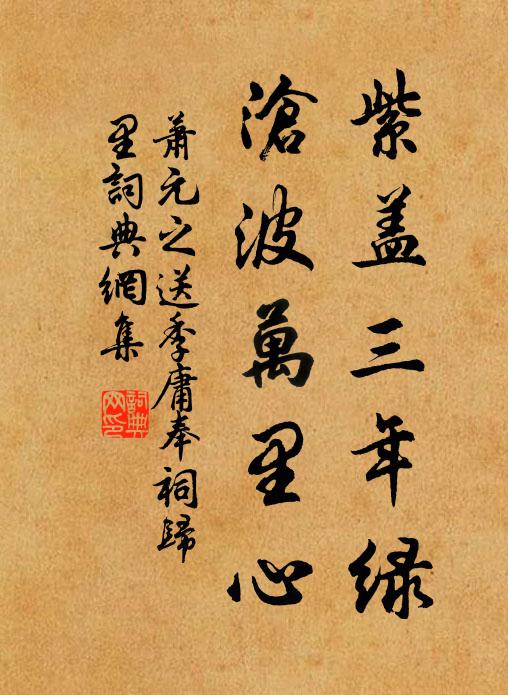 紫盖三年緑
滄波萬里心
蕭元之送季庸奉祠歸
里詞典網集
詞典
网印